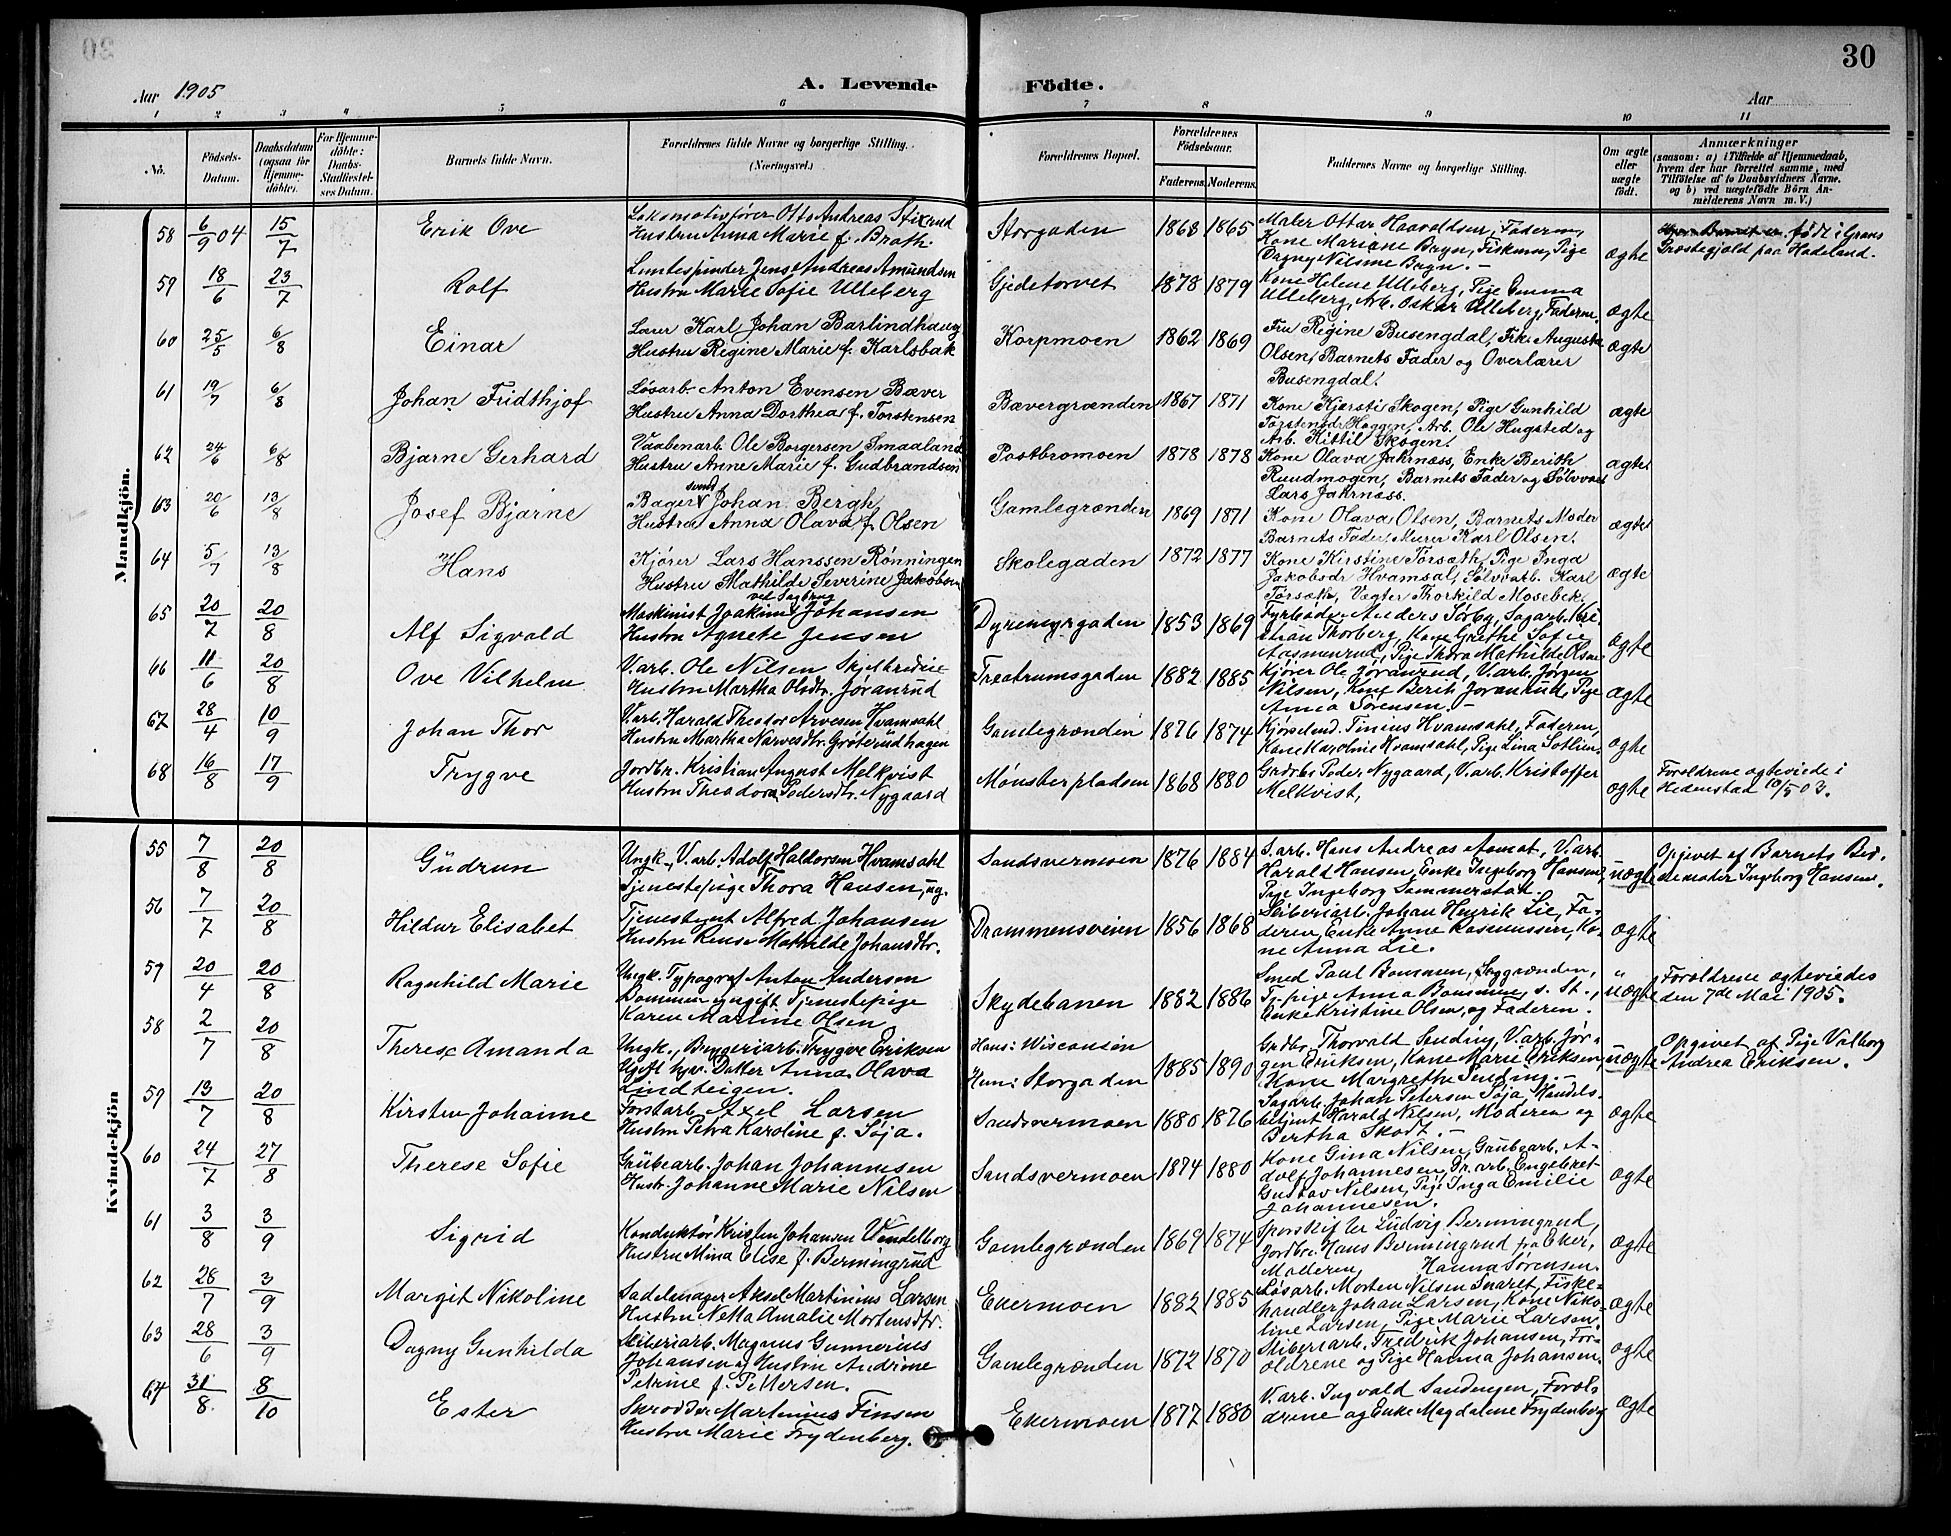 30
Aar 1905
A. Levende Födte.
Aar
1 2 3 4 5 6 7 8 9 10 11
No.
Födsels-Datum.
Daabsdatum (ogsaa for Hjemme-döbte).
For Hjemme-döbte: Daabs-Stadfæstel-ses Datum.
Barnets fulde Navn.
Forældrenes fulde Navne og borgerlige Stilling. (Næringsvei.)
Forældrenes Bopæl.
Forældrenes Födselsaar.
Faderens. Moderens.
Faddernes Navne og borgerlige Stilling.
Om ægte eller uægte födt.
Anmærkninger
(saasom: a) i Tilfælde af Hjemmedaab,
hvem der har forrettet samme, med
Tilföielse af to Daabsvidners Navne,
og b) ved uægtefödte Börn An-
melderens Navn m. V.)
Mandkjön.
58 6/9 04 15/7 Erik Ove
Lokomotivfører Otto Andreas Stixrud
Hustru Anna Marie f. Brath.
Storgaden 1868 1865
Maler Ottar Haavoldsen, Faderen,
Kone Mariane Bryn, Eiskmen, Pige
Dagny Nilsine Bryn.
ægte
født i Grans
Præstegjæld paa Hadeland.
59 18/6 23/7 Rolf
Luntespinder Jens Andreas Amundsen
Hustru Marie Sofie Ulleberg
Gjedetorvet 1878 1879
Kone Helene Ulleberg, Pige Emma
Ulleberg, Arb. Oskar Ulleberg, Faderen.
ægte
60 25/5 6/8 Einar
Lærer Karl Johan Barlindhaug
Hustru Regine Marie f. Karlsbak
Korpmoen 1862 1869
Fru Regine Busengdal, Frk. Augusta
Olsen, Barnets Fader og Overlærer
Busengdal.
ægte
61 19/7 6/8 Johan Fridthjof
Løsarb. Anton Evensen Bæver
Hustru Anna Dorthea f. Torstensen
Bævergrænden 1867 1871
Kone Kjersti Skogen, Pige Gunhild
Torstensdr. Haggen, Arb. Ole Hugsted og
Arb. Kittil Skogen.
ægte
62 24/6 6/8 Bjarne Gerhard
Vaabenarb. Ole Borgersen Smaaland
Hustru Anne Marie f. Gudbrandsen
Postbromoen 1878 1878
Kone Olava Jahrnæss, Enke Berith
Ruudmogen, Barnets Fader og Sølvva
Lars Jahrnæss.
ægte
63 20/6 13/8 Josef Bjarne
Bagersvend Johan Bergh,
Hustru Anna Olava f. Olsen
Gamlegrænden 1869 1871
Kone Olava Olsen, Barnets Moder
Barnets Fader, Murer Karl Olsen.
ægte
64 5/7 13/8 Hans
Kjører Lars Hanssen Rønningen
Hustru Mathilde Severine Jakobsen
Skolegaden 1872 1877
Kone Kirstine Torsæth, Pige Inga
Jakobsdr Hvamsal, Sølvarb. Karl
Torsæth, Vægter Thorkild Mosebek.
ægte
65 20/7 20/8 Alf Sigvald
Maskinist ved Sagbrug Joakim Johansen
Hustru Agnete Jensen
Dyremyrgaden 1853 1869
Fyrbøder Anders Sørby, Sagarb. Kri-
stian Thorberg, Kone Grethe Sofie
Aasmunrud, Pige Thora Mathilde Olsen
ægte
66 11/6 20/8 Ove Vilhelm
V.arb. Ole Nilsen Skjelbredeie
Hustru Martha Olsdtr. Jøranrud
Treatrumsgaden 1882 1885
Kjører Ole Jøranrud, V.arb. Jørgen
Nilsen, Kone Berit Jøranrud, Pige
Anna Sørensen.
ægte
67 28/4 10/9 Johan Thor
V.arb. Harald Theodor Arvesen Hvamsahl
Hustru Martha Narvesdtr. Grøterudhagen
Gamlegrænden 1876 1874
Kjørselmd. Tinius Hvamsahl, Faderen,
Kone Karoline Hvamsahl, Pige Lina Sotlien.
ægte
68 16/8 17/9 Trygve
Jordbr. Kristian August Melkvist
Hustru Theodora Pedersdtr. Nygaard
Mønsterpladsen 1868 1880
Grdbr. Peder Nygaard, V.arb. Kristoffer
Melkvist,
ægte
Forældrene ægteviede i
Hedenstad 10/5 03.
Kvindekjön
55 7/8 20/8 Gudrun
Ungk., V.arb. Adolf Haldorsen Hvamsahl
Tjenestepige Thora Hansen, ug.
Sandsvermoen 1876 1884
S.arb. Hans Andreas Aamot, V.arb.
Harald Hansen, Enke Ingeborg Hansen,
Pige Ingeborg Sommerstad.
uægte
Opgivet af Barnets Bed-
stemoder Ingeborg Hansen.
56 7/7 20/8 Hildur Elisabet
Tjenestgut Alfred Johansen
Hustru Rense Mathilde Johansdtr.
Drammensveien 1856 1868
Støberiarb. Johan Henrik Lie, Fa-
deren, Enke Anne Rasmussen, Ko-
ne Anna Lie.
ægte
57 20/4 20/8 Ragnhild Marie
Ungk. Typograf Anton Andersen
Bommen og ugift Tjenestepige
Karen Martine Olsen.
Skydebanen 1882 1886
Smed Paul Bommen, Saggrænden,
Tj. pige Anna Bommen, s. St.,
Enke Kristine Olsen, og Faderen.
uægte
Forældrene ægteviedes
den 7de Mai 1905.
58 2/7 20/8 Therese Amanda
Ungk., Bryggeriarb. Trygve Eriksen
Ugift hjv. Datter Anna Olava
Lindteigen.
Hans: Wisconsin
Hun: Storgaden 1885 1890
Grdbr. Thorvald Sending, V.arb. Jør-
gen Eriksen, Kone Marie Eriksen,
Kone Margrethe Sending.
uægte
Opgivet af Pige Valborg
Andrea Eriksen.
59 13/7 20/8 Kirsten Johanne
Forstarb. Axel Larsen
Hustru Petra Karoline f. Søja.
Sandsvermoen 1880 1876
Sagarb. Johan Petersen Søja, Handels-
betjent Harald Nilsen, Moderen og
Bertha Skodt.
ægte
60 24/7 27/8 Therese Sofie
Grubearb. Johan Johannesen
Hustr. Johanne Marie Nilsen
Sandsvermoen 1874 1880
Kone Gina Nilsen, Grubearb. A-
dolf Johannesen, Gr. arb. Engebret
Gustav Nilsen, Pige Inga Emilie
Johannesen.
ægte
61 3/8 3/9 Sigrid
Konduktør Kristen Johansen Vendelborg
Hustru Mina Else f. Bermingrud
Gamlegrænden 1869 1874
Sporskifter Ludvig Bermingrud,
Jordbr. Hans Bermingrud fra Eker,
Moderen, Hanna Sørensen.
ægte
62 28/7 3/9 Margit Nikoline
Sadelmager Aksel Martinius Larsen
Hustru Netta Amalie Mortensdtr.
Ekermoen 1882 1885
Løsarb. Morten Nilsen Snaret, Fiske-
handler Johan Larsen, Kone Niko-
line Larsen, Pige Marie Larsen.
ægte
63 28/6 3/9 Dagny Gunhilda
Støberiarb. Magnus Gunnerius
Johansen og Hustru Andrine
Petrine f. Pettersen.
Gamlegrænden 1872 1870
Støberiarb. Fredrik Johansen, For-
ældrene og Pige Hanna Johansen.
ægte
64 31/8 8/10 Ester
Skrædder Martinius Finsen
Hustru Marie Frydenberg.
Ekermoen 1877 1880
V.arb. Ingvald Sandengen, Foræl-
drene og Enke Magdalene Frydenberg
ægte